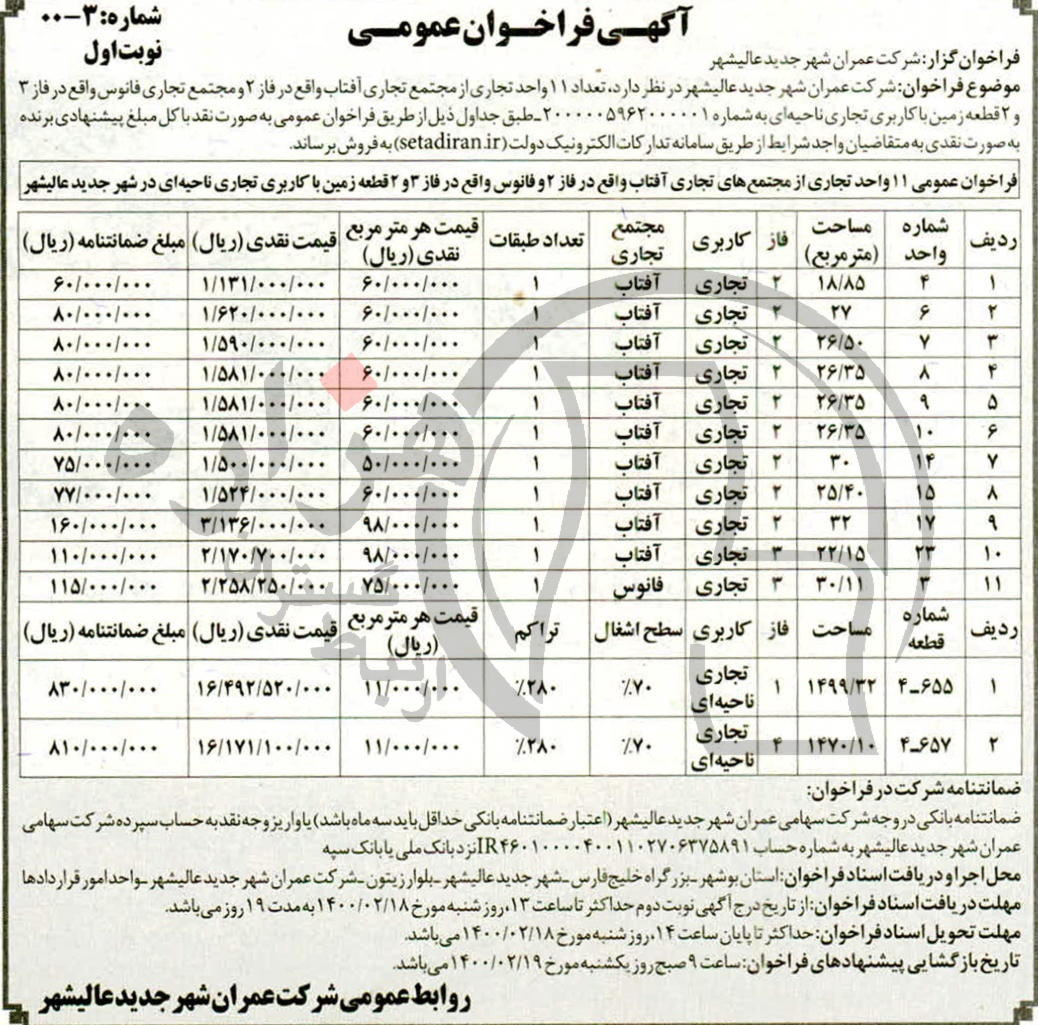 شماره: ۳-۰۰
نوبت اول
آگهی فراخوان عمومی
فراخوان گزار: شرکت عمران شهر جدید عالیشهر
موضوع فراخوان: شرکت عمران شهر جدید عالیشهر در نظر دارد، تعداد ۱۱ واحد تجاری از مجتمع تجاری آفتاب واقع در فاز ۲ و مجتمع تجاری فانوس واقع در فاز ۳
و ۲ قطعه زمین با کاربری تجاری ناحیه‌ای به شماره ۲۰۰۰۰۰۵۹۶۲۰۰۰۰۰۱ ـ طبق جداول ذیل از طریق فراخوان عمومی به صورت نقد با کل مبلغ پیشنهادی برنده
به صورت نقدی به متقاضیان واجد شرایط از طریق سامانه تدارکات الکترونیک دولت (setadiran.ir) به فروش برساند.
فراخوان عمومی ۱۱ واحد تجاری از مجتمع های تجاری آفتاب واقع در فاز ۲ و فانوس واقع در فاز ۳ و ۲ قطعه زمین با کاربری تجاری ناحیه‌ای در شهر جدید عالیشهر
ردیف شماره واحد مساحت (مترمربع) فاز کاربری مجتمع تجاری تعداد طبقات قیمت هر متر مربع نقدی (ریال) قیمت نقدی (ریال) مبلغ ضمانتنامه (ریال)
۱ ۴ ۱۸/۸۵ ۲ تجاری آفتاب ۱ ۶۰/۰۰۰/۰۰۰ ۱/۱۳۱/۰۰۰/۰۰۰ ۶۰/۰۰۰/۰۰۰
۲ ۶ ۲۷ ۲ تجاری آفتاب ۱ ۶۰/۰۰۰/۰۰۰ ۱/۶۲۰/۰۰۰/۰۰۰ ۸۰/۰۰۰/۰۰۰
۳ ۷ ۲۶/۵۰ ۲ تجاری آفتاب ۱ ۶۰/۰۰۰/۰۰۰ ۱/۵۹۰/۰۰۰/۰۰۰ ۸۰/۰۰۰/۰۰۰
۴ ۸ ۲۶/۳۵ ۲ تجاری آفتاب ۱ ۶۰/۰۰۰/۰۰۰ ۱/۵۸۱/۰۰۰/۰۰۰ ۸۰/۰۰۰/۰۰۰
۵ ۹ ۲۶/۳۵ ۲ تجاری آفتاب ۱ ۶۰/۰۰۰/۰۰۰ ۱/۵۸۱/۰۰۰/۰۰۰ ۸۰/۰۰۰/۰۰۰
۶ ۱۰ ۲۶/۳۵ ۲ تجاری آفتاب ۱ ۶۰/۰۰۰/۰۰۰ ۱/۵۸۱/۰۰۰/۰۰۰ ۸۰/۰۰۰/۰۰۰
۷ ۱۴ ۳۰ ۲ تجاری آفتاب ۱ ۵۰/۰۰۰/۰۰۰ ۱/۵۰۰/۰۰۰/۰۰۰ ۷۵/۰۰۰/۰۰۰
۸ ۱۵ ۲۵/۴۰ ۲ تجاری آفتاب ۱ ۶۰/۰۰۰/۰۰۰ ۱/۵۲۴/۰۰۰/۰۰۰ ۷۷/۰۰۰/۰۰۰
۹ ۱۷ ۳۲ ۲ تجاری آفتاب ۱ ۹۸/۰۰۰/۰۰۰ ۳/۱۳۶/۰۰۰/۰۰۰ ۱۶۰/۰۰۰/۰۰۰
۱۰ ۲۳ ۲۲/۱۵ ۳ تجاری آفتاب ۱ ۹۸/۰۰۰/۰۰۰ ۲/۱۷۰/۷۰۰/۰۰۰ ۱۱۰/۰۰۰/۰۰۰
۱۱ ۳ ۳۰/۱۱ ۳ تجاری فانوس ۱ ۷۵/۰۰۰/۰۰۰ ۲/۲۵۸/۲۵۰/۰۰۰ ۱۱۵/۰۰۰/۰۰۰
ردیف شماره قطعه مساحت فاز کاربری سطح اشغال تراکم قیمت هر مترمربع (ریال) قیمت نقدی (ریال) مبلغ ضمانتنامه (ریال)
۱ ۴ـ۶۵۵ ۱۴۹۹/۳۲ ۱ تجاری ناحیه‌ای ٪۷۰ ٪۲۸۰ ۱۱/۰۰۰/۰۰۰ ۱۶/۴۹۲/۵۲۰/۰۰۰ ۸۳۰/۰۰۰/۰۰۰
۲ ۴ـ۶۵۷ ۱۴۷۰/۱۰ ۴ تجاری ناحیه‌ای ٪۷۰ ٪۲۸۰ ۱۱/۰۰۰/۰۰۰ ۱۶/۱۷۱/۱۰۰/۰۰۰ ۸۱۰/۰۰۰/۰۰۰
ضمانتنامه شرکت در فراخوان:
ضمانتنامه بانکی در وجه شرکت سهامی عمران شهر جدید عالیشهر (اعتبار ضمانتنامه بانکی حداقل باید سه ماه باشد) یا واریز وجه نقد به حساب سپرده شرکت سهامی
عمران شهر جدید عالیشهر به شماره حساب IR۴۶۰۱۰۰۰۰۴۰۰۱۱۰۲۷۰۶۳۷۵۸۹۱ نزد بانک ملی یا بانک سپه
محل اجرا و دریافت اسناد فراخوان: استان بوشهر ـ بزرگراه خلیج فارس ـ شهر جدید عالیشهر ـ بلوار زیتون ـ شرکت عمران شهر جدید عالیشهر ـ واحد امور قراردادها
مهلت دریافت اسناد فراخوان: از تاریخ درج آگهی نوبت دوم حداکثر تا ساعت ۱۳، روز شنبه مورخ ۱۴۰۰/۰۲/۱۸ به مدت ۱۹ روز می‌باشد.
مهلت تحویل اسناد فراخوان: حداکثر تا پایان ساعت ۱۴، روز شنبه مورخ ۱۴۰۰/۰۲/۱۸ می‌باشد.
تاریخ بازگشایی پیشنهادهای فراخوان: ساعت ۹ صبح روز یکشنبه مورخ ۱۴۰۰/۰۲/۱۹ می‌باشد.
روابط عمومی شرکت عمران شهر جدید عالیشهر
هزاره